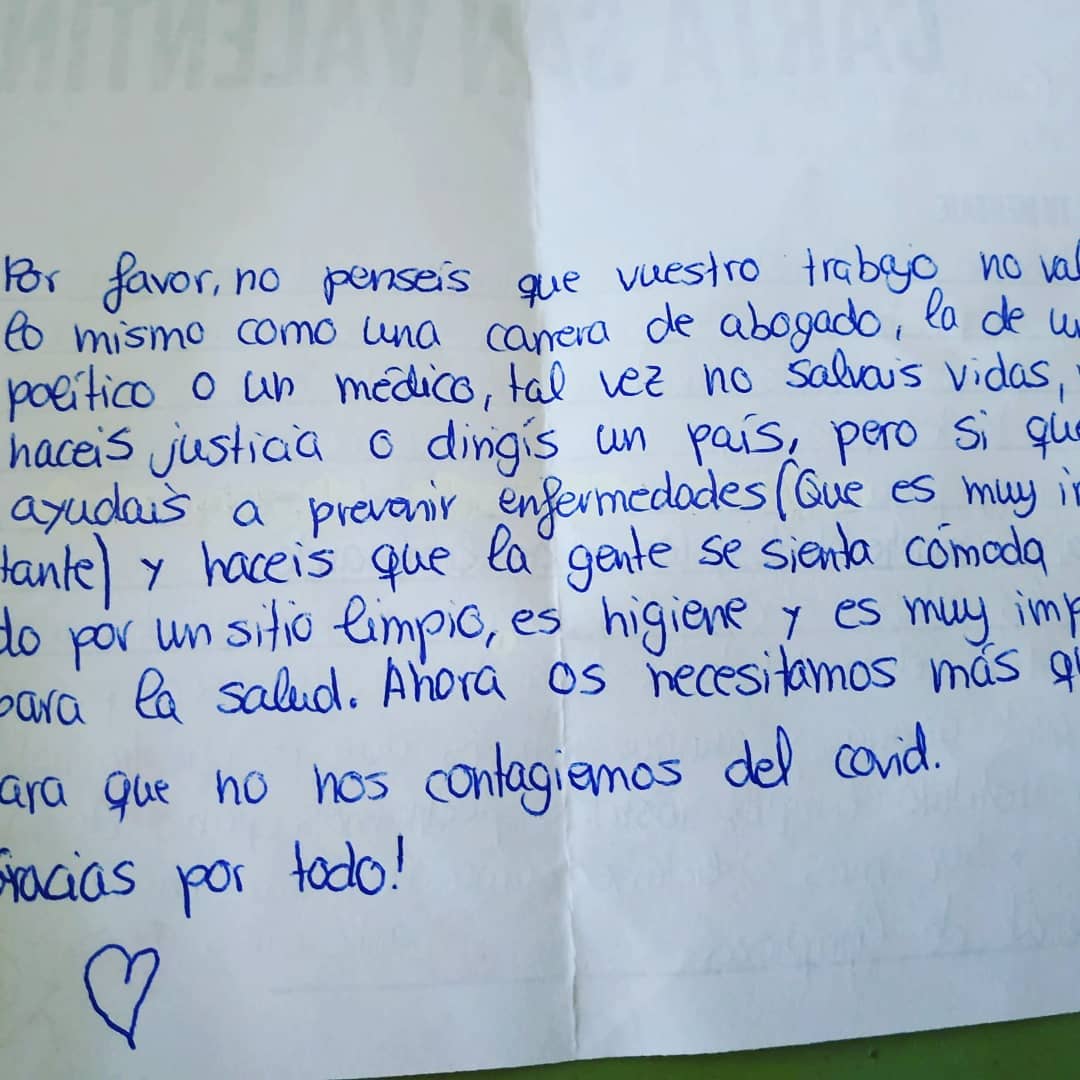 CARTA SAN VALENTIN
Por favor, no penseis que vuestro trabajo no val
lo mismo como una carrera de abogado, la de u
político o un médico, tal vez no salvais vidas,
haceis justicia o dirigís un país, pero si que
ayudais a prevenir enfermedades (Que es muy i
tante) y haceis que la gente se sienta cómoda
do por un sitio limpio, es higiene y es muy imp
para la salud. Ahora os necesitamos más qu
ara que no nos contagiemos del covid.
Gracias por todo!